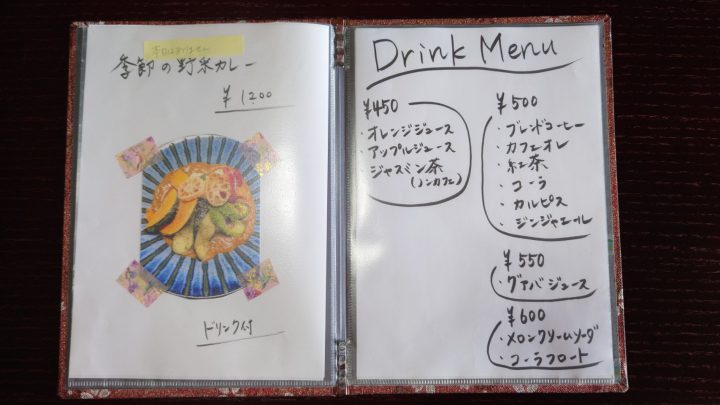 本日はありません
季節の野菜カレー
¥1,200
ドリンク付
Drink Menu
¥450
・オレンジジュース
・アップルジュース
・ジャスミン茶
(ノンカフェ)
¥500
・ブレンドコーヒー
・カフェオレ
・紅茶
・コーラ
・カルピス
・ジンジャエール
¥550
・グァバジュース
¥600
・メロンクリームソーダ
・コーラフロート